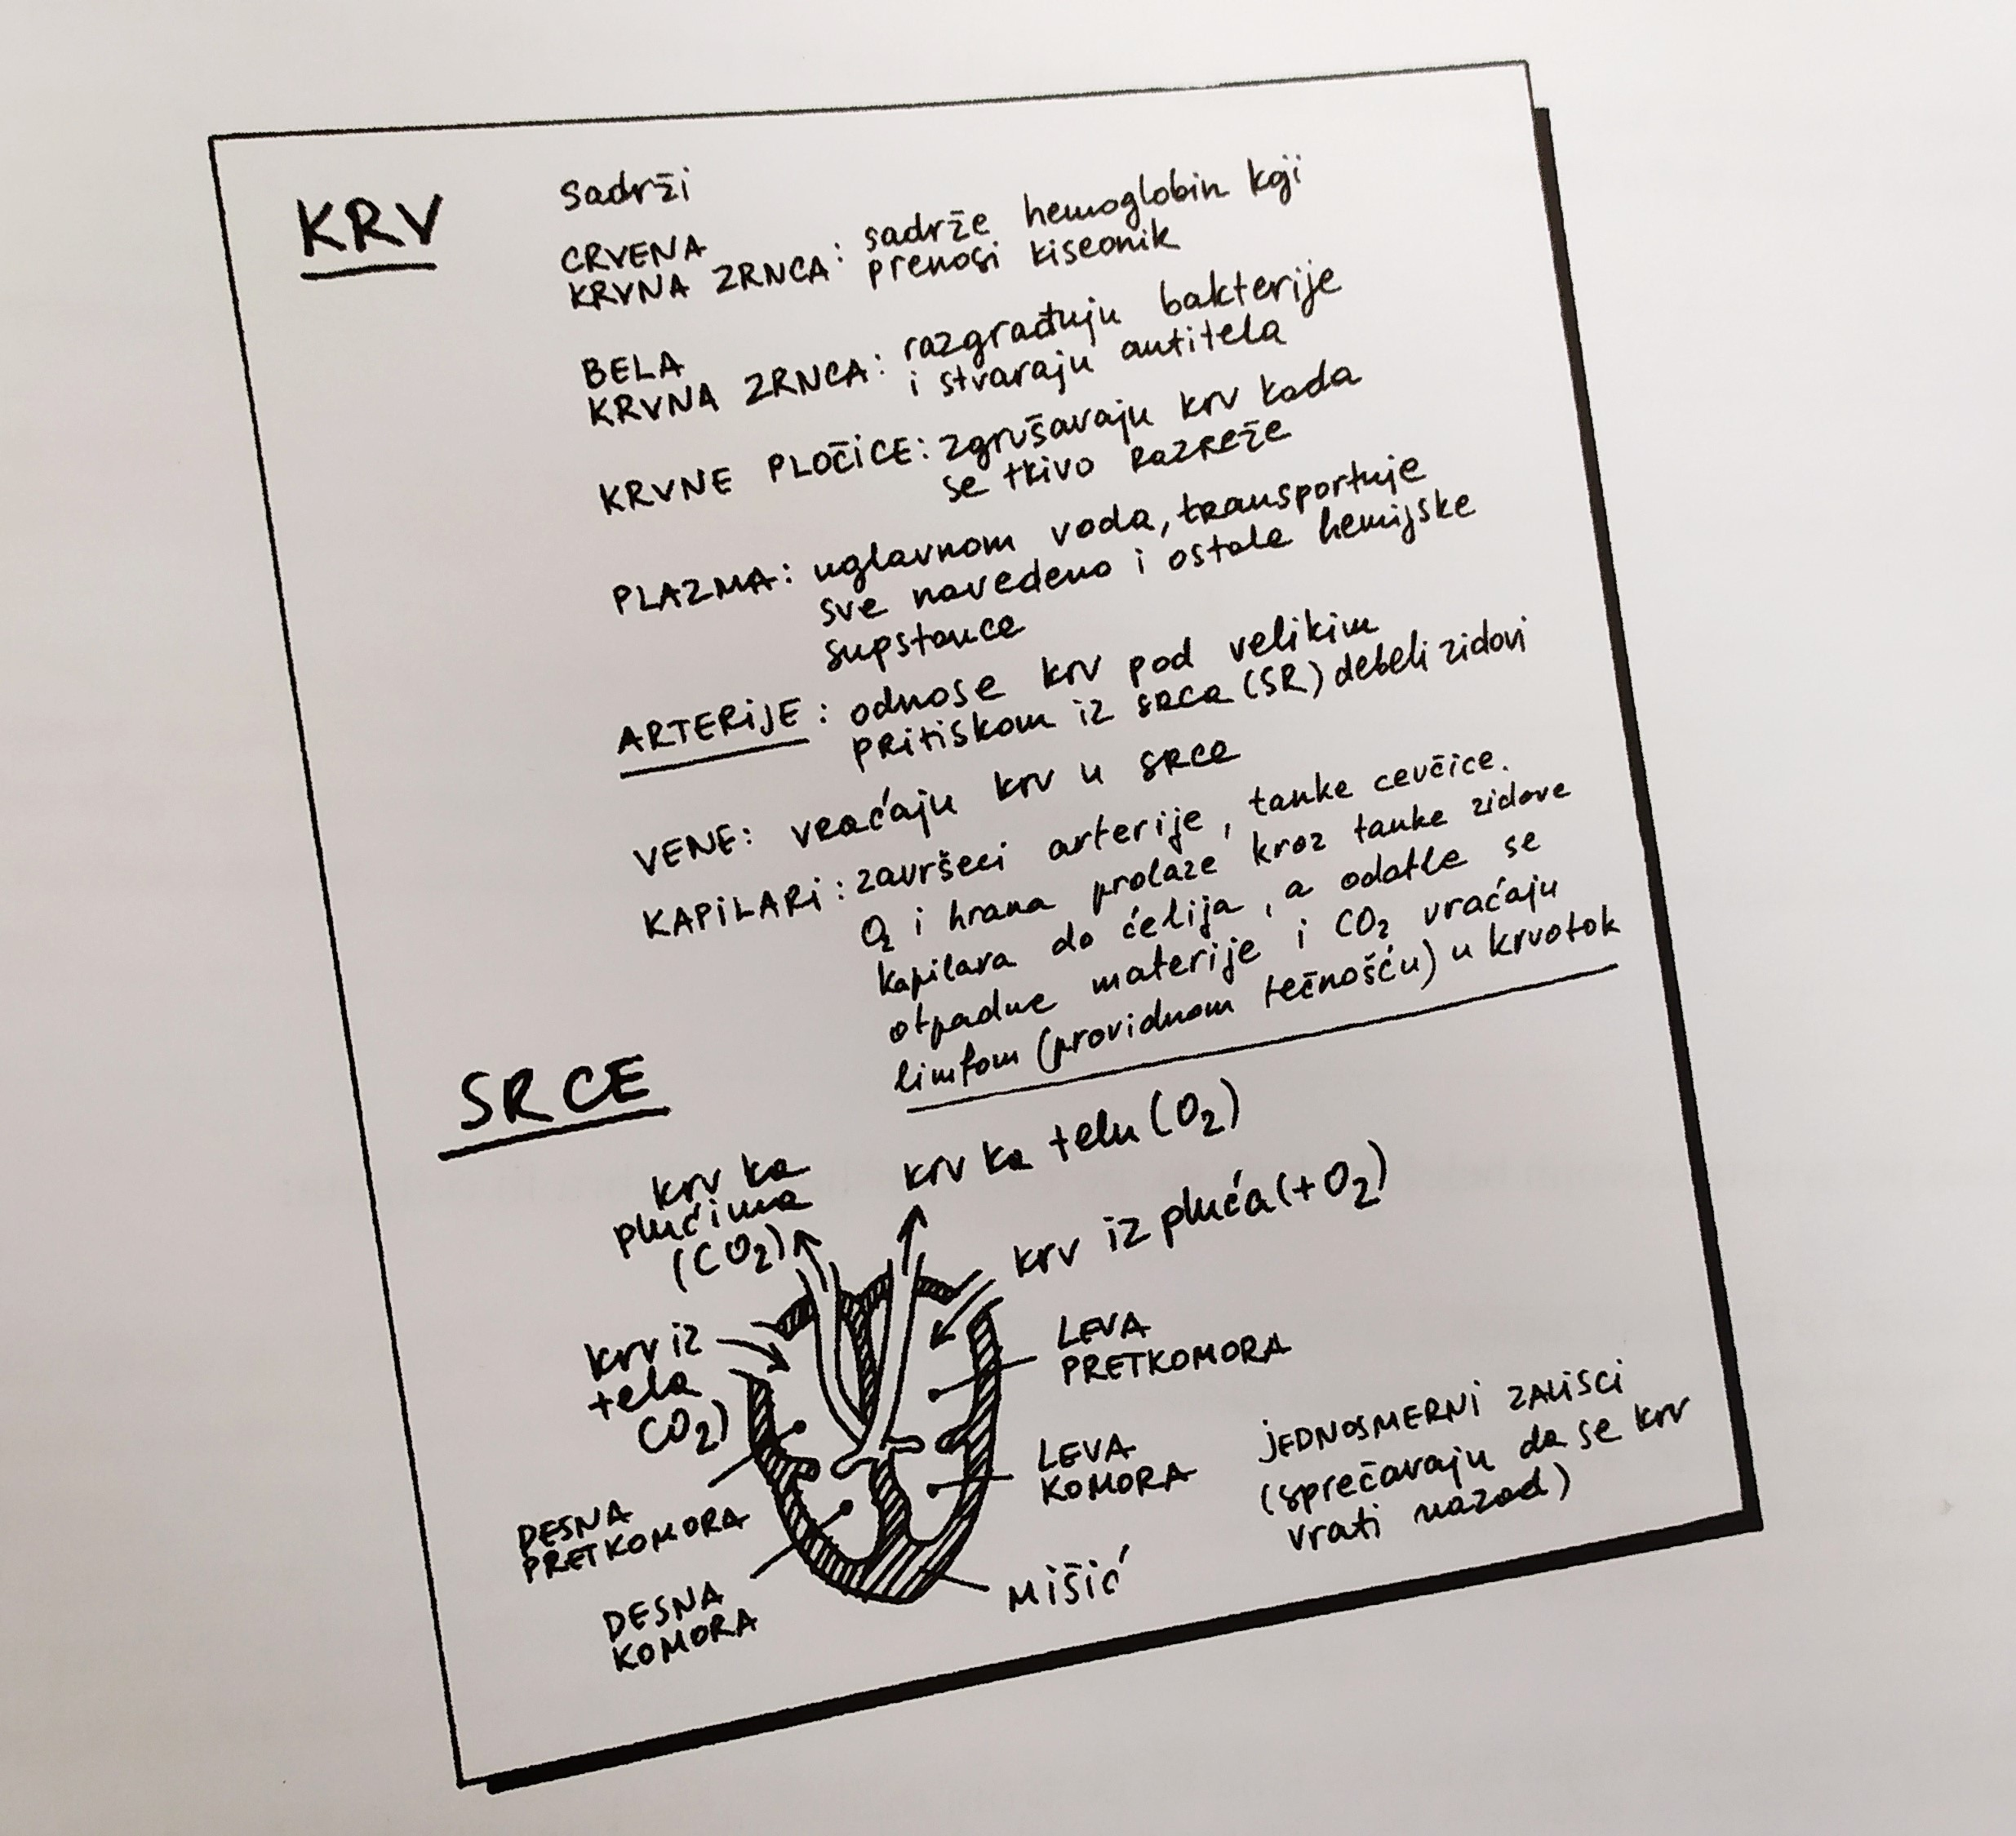 KRV
Sadrži
CRVENA
KRVNA ZRNCA: sadrže hemoglobin koji
prenosi kiseonik
BELA
KRVNA ZRNCA: razgrađuju bakterije
i stvaraju antitela
KRVNE PLOČICE: zgrušavaju krv kada
se tkivo razreže
PLAZMA: uglavnom voda, transportuje
sve navedeno i ostale hemijske
supstance
ARTERIJE: odnose krv pod velikim
pritiskom iz srca (SR) debeli zidovi
VENE: vraćaju krv u srce
KAPILARI: završeci arterije, tanke cevčice.
O2 i hrana prolaze kroz tanke zidove
kapilara do ćelija, a odatle se
otpadne materije i CO2 vraćaju
limfom (providnom tečnošću) u krvotok
SRCE
krv ka
plućima
(CO2)
krv ka telu (O2)
krv iz pluća (+O2)
krv iz
tela
CO2)
LEVA
PRETKOMORA
LEVA
KOMORA
JEDNOSMERNI ZALISCI
(sprečavaju da se krv
vrati nazad)
DESNA
PRETKOMORA
DESNA
KOMORA
MIŠIĆ